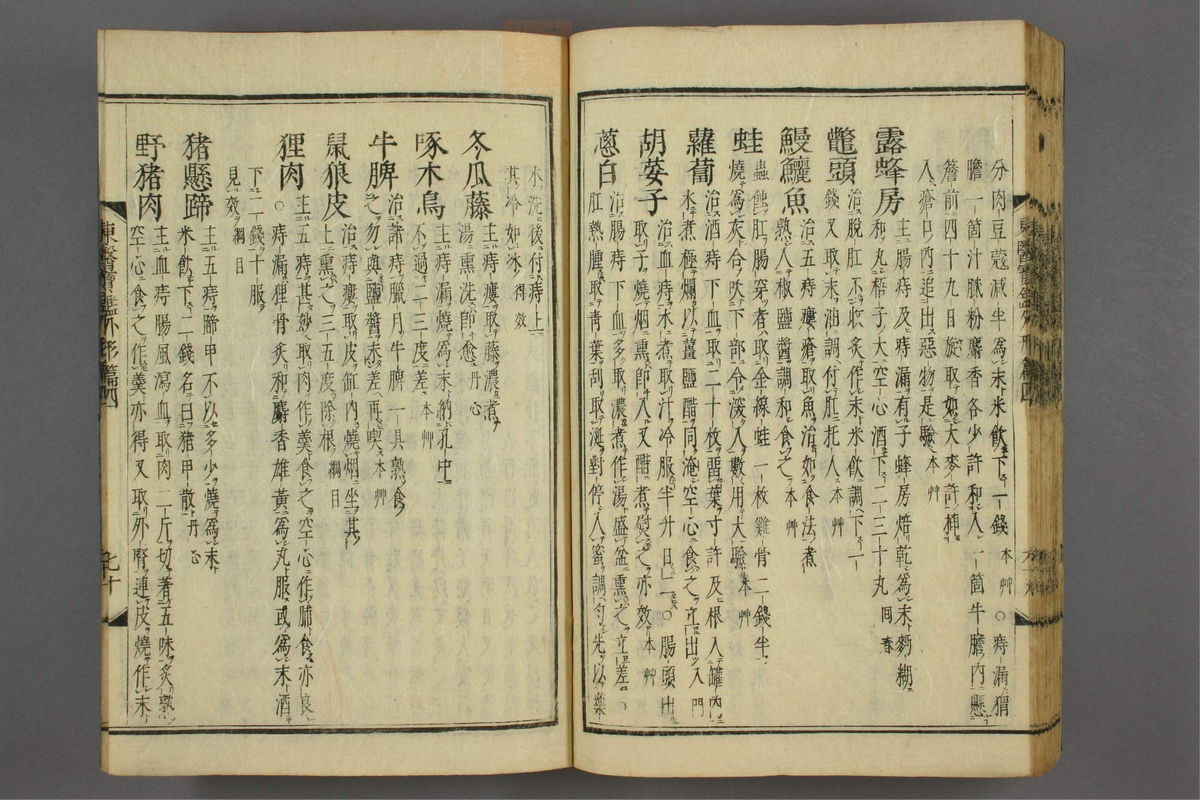 分肉豆蔻減半爲末米飮下一錢本艸○痔漏猬
膽一箇汁膩粉麝香各少許和入一箇牛膽內懸
簷前四十九日旋取如大麥許揷
入瘡口內追出惡物是驗本艸
露蜂房主腸痔及痔漏有子蜂房焙乾爲末麪糊
和丸梧子大空心酒下二三十丸回春
鼈頭治脫肛不收炙作末米飮調下一
錢又取末油調付肛托入本艸
鰻鱺魚治五痔瘻瘡取魚治如食法煮
熟入椒鹽醬調和食之本艸
蛙蟲蝕肛腸穿者取金線蛙一枚雞骨二錢半
燒爲灰合吹下部令深入數用大驗本艸
蘿蔔治酒痔下血取二十枚留葉寸許及根入罐內
水煮極爛以薑鹽醋同淹空心食之立出入門
胡荽子治血痔水煮取汁冷服半升日二○腸頭出
取子燒烟熏卽入又醋煮熨之亦效本艸
葱白治腸痔下血多取濃煮作湯盛盆熏之立差○
肛熱腫取靑葉刮取涎對停入蜜調勻先以藥
東醫寶鑑外形篇四
水洗後付痔上
其冷如冰得效
冬瓜藤主痔瘻取藤濃煮
湯熏洗卽愈丹心
啄木鳥主痔漏燒爲末納孔中
不過二三度差本艸
牛脾治諸痔臘月牛脾一具熟食
之勿與鹽醬未差再喫本艸
鼠狼皮治痔瘻取皮缸內燒烟坐其
上熏之三五度除根綱目
狸肉主五痔甚妙取肉作羹食之空心作脯食亦良
○痔漏狸骨炙和麝香雄黃爲丸服或爲末酒
下二錢十服
見效綱目
猪懸蹄主五痔蹄甲不以多少燒爲末
米飮下一錢名曰猪甲散丹心
野猪肉主血痔腸風瀉血取肉二斤切著五味炙熟
空心食之作羹亦得又取外腎連皮燒作末
東醫寶鑑外形篇四
七十